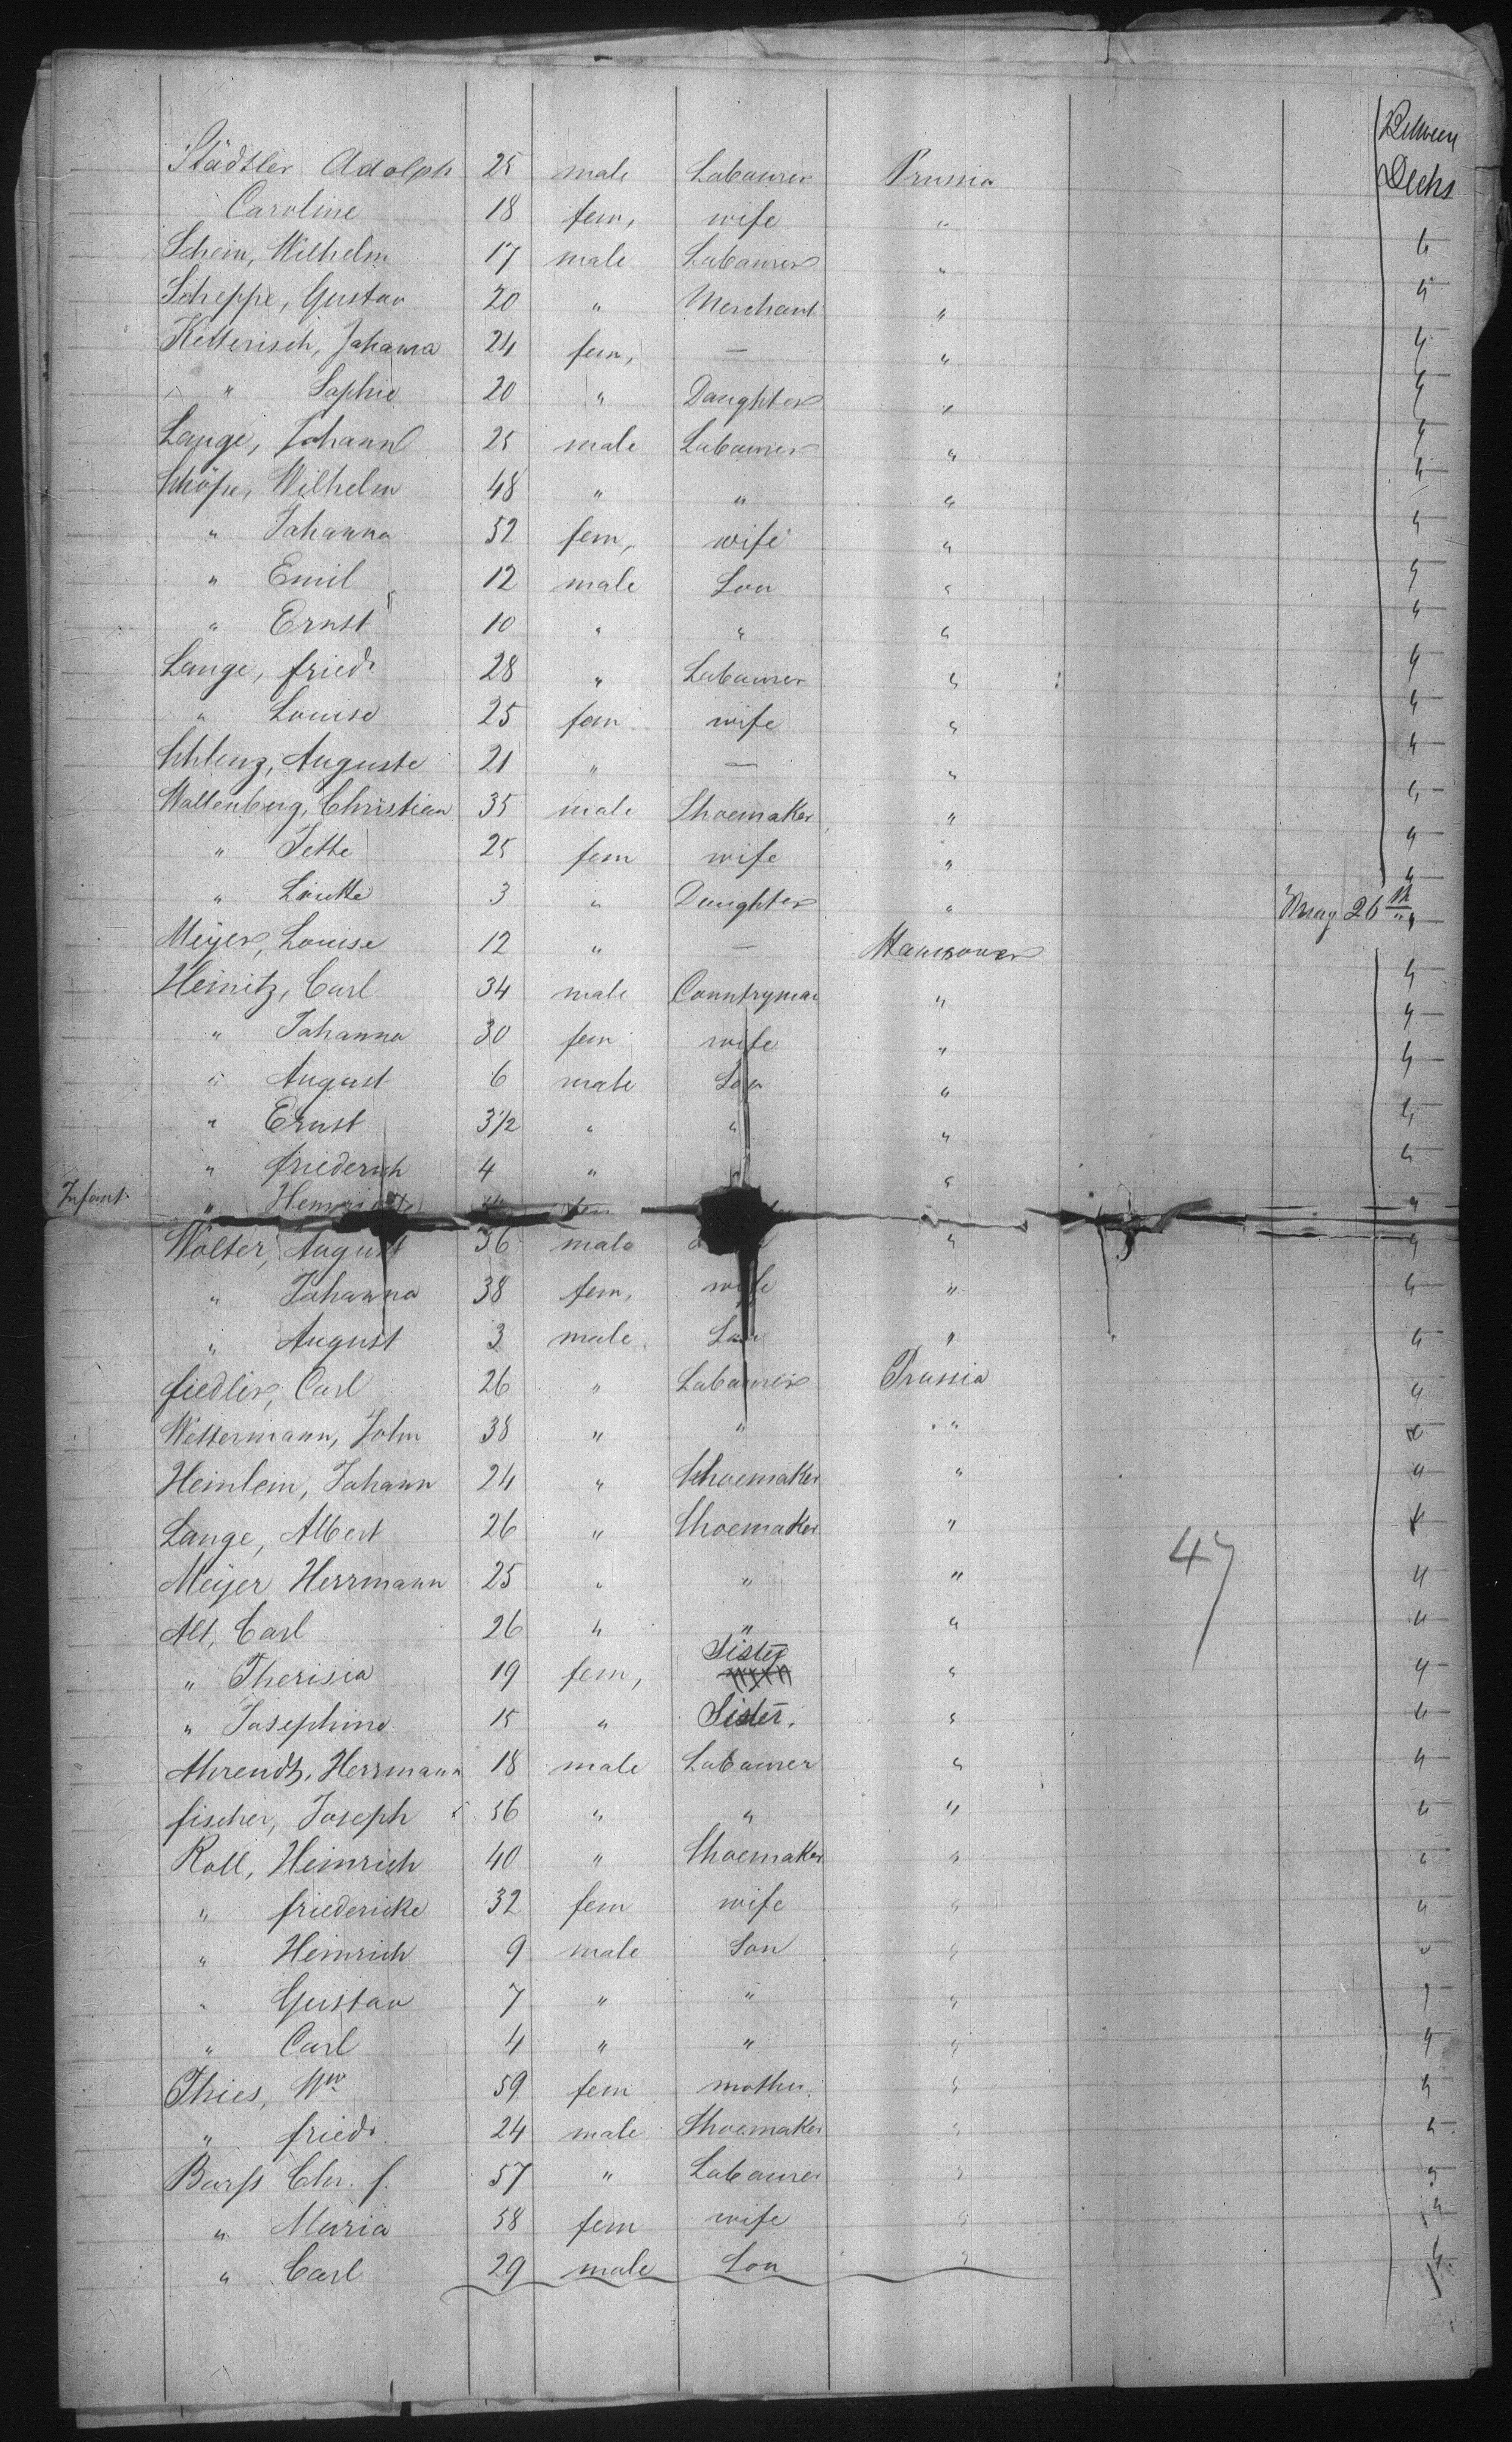 Between Decks
Städtler Adolph 25 male Labaurer Prussia
Caroline 18 fem, wife "
Schein, Wilhelm 17 male Labaurer " "
Scheppe, Gustav 20 " Merchant " "
Ketterisch, Johanna 24 fem, — " "
" Sophie 20 " Daughter " "
Lange, Johann 25 male Labaurer " "
Schöpe, Wilhelm 48 " " " "
" Johanna 52 fem, wife " "
" Emil 12 male Son " "
" Ernst 10 " " " "
Lange, friedr 28 " Labaurer " "
" Louise 25 fem wife " "
Auguste 21 " — " "
Waltenberg, Christian 35 male Shoemaker " "
" Jette 25 fem wife " "
" 3 " Daughter " May 26th "
Meijer, Louise 12 " — Hannover "
Heinitz, Carl 34 male Countryman " "
" Johanna 30 fem wife " "
" August 6 male Son " "
" Ernst 3 1/2 " " " "
" friederich 4 " " "
Infant " fem "
Wolter, August 36 male " "
" Johanna 38 fem, wife " "
" August 3 male Son " "
fiedler, Carl 26 " Labaurer Prussia "
Westermann, John 38 " " " "
Heinlein, Johann 24 " Schoemaker " "
Lange, Albert 26 " Shoemaker " "
47
Meijer Herrmann 25 " " " "
Alt, Carl 26 " " " "
" Therisia 19 fem, Sister " "
" Josephine 15 " Sister. " "
Ahrendt, Herrmann 18 male Labaurer " "
fischer, Joseph 56 " " " "
Roll, Heinrich 40 " Shoemaker " "
" friedericke 32 fem wife " "
" Heinrich 9 male Son " "
" Gustav 7 " " " "
" Carl 4 " " " "
Thies, Ww 59 fem mother " "
" friedr. 24 male Shoemaker " "
Barss Chr. f. 57 " Labaurer " "
" Maria 58 fem wife " "
" Carl 29 male Son " "